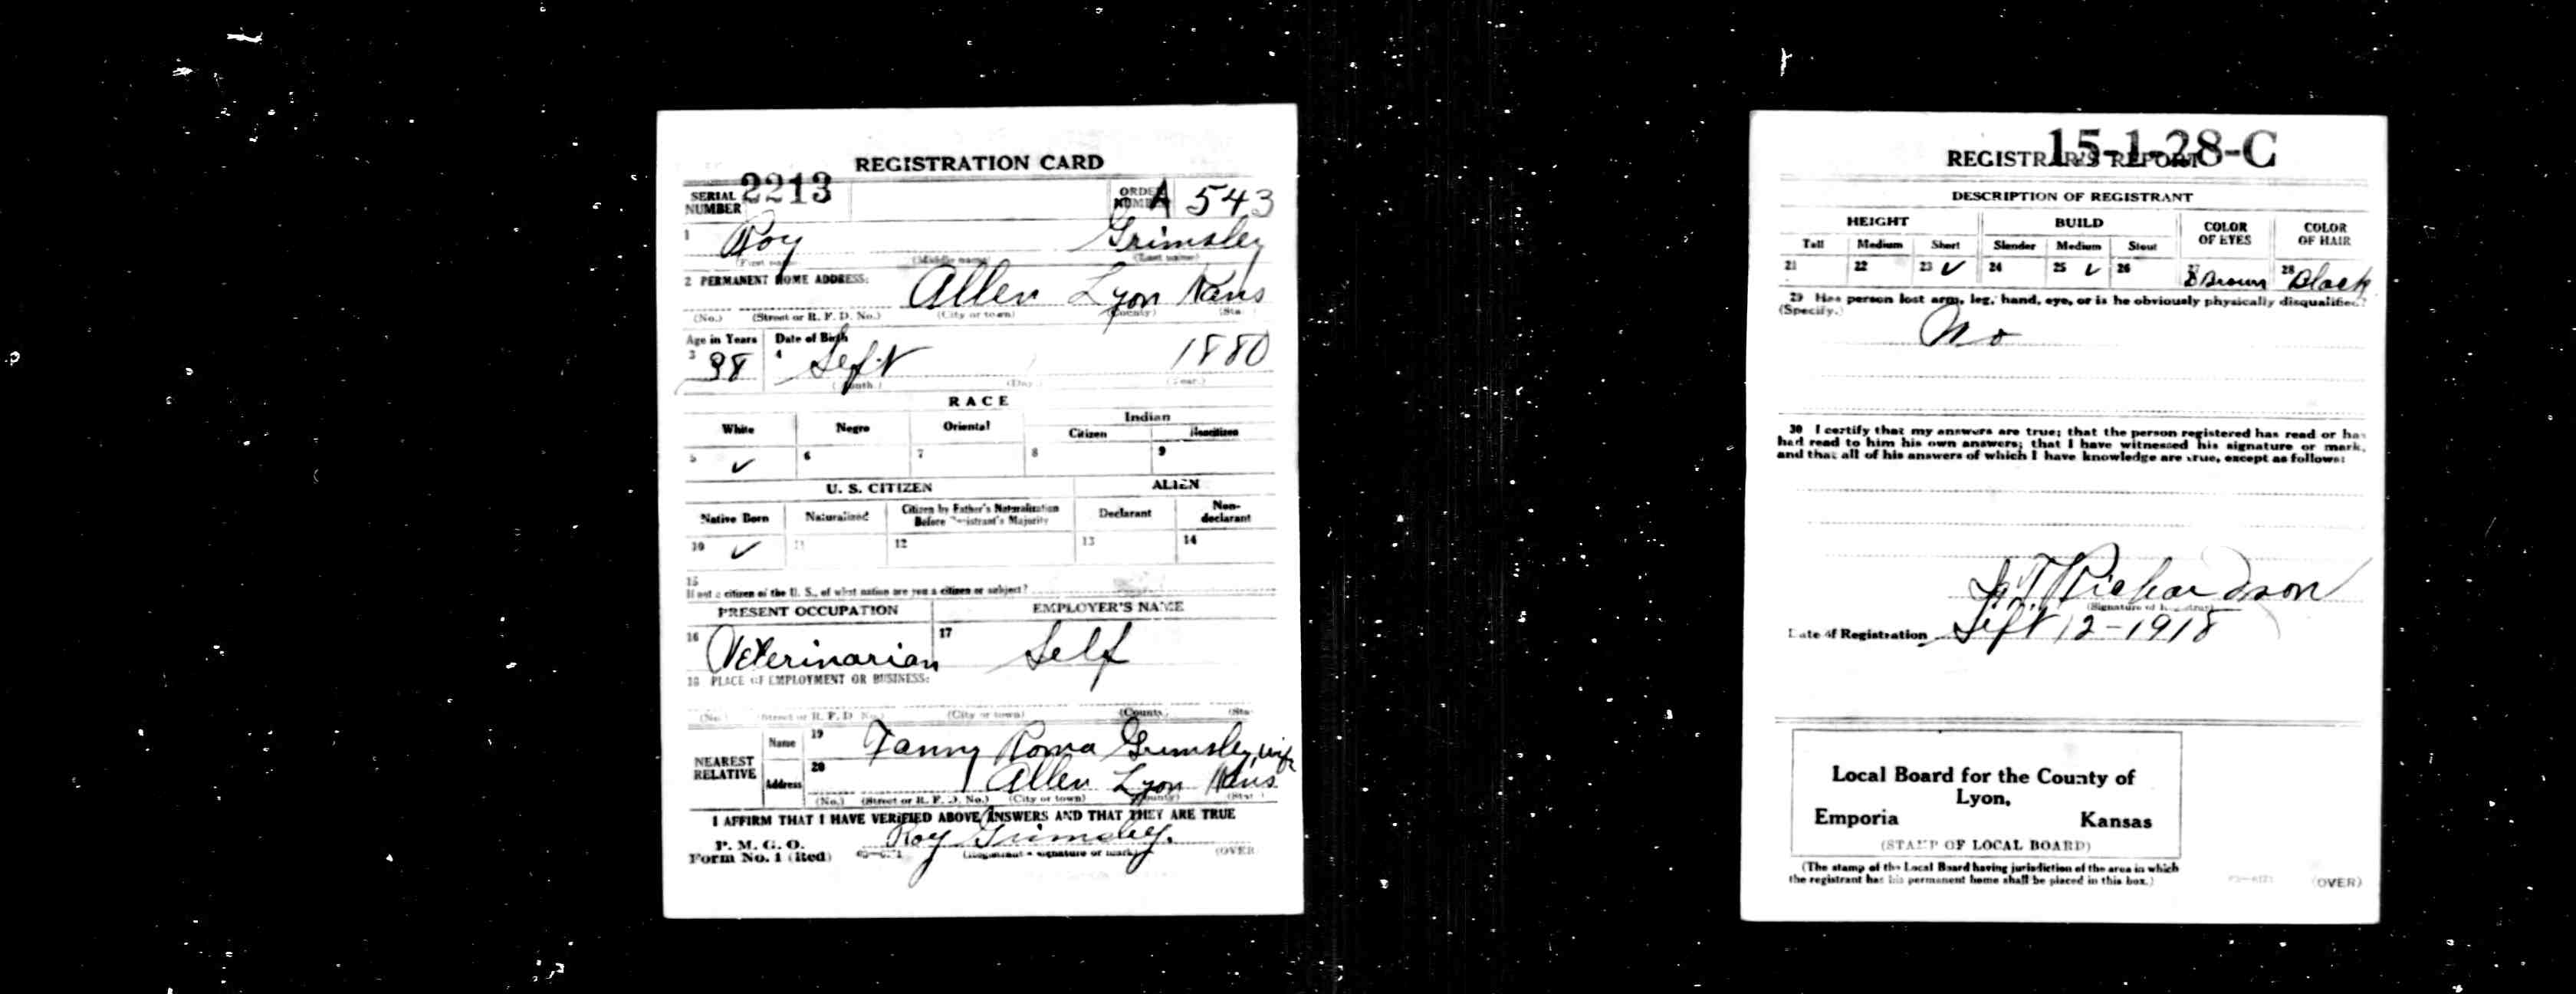 REGISTRATION CARD
SERIAL NUMBER 2213 ORDER NUMBER A 543
1 Roy Grimsley
(First name) (Middle name) (Last name)
2 PERMANENT HOME ADDRESS:
Allen Lyon Kans
(No.) (Street or R. F. D. No.) (City or town) (County) (State)
Age in Years Date of Birth
3 38 4 Sept 1880
(Month.) (Day.) (Year.)
RACE
White Negro Oriental Indian
Citizen Noncitizen
5 ✓ 6 7 8 9
U. S. CITIZEN ALIEN
Native Born Naturalized Citizen by Father's Naturalization Before Registrant's Majority Declarant Non-declarant
10 ✓ 11 12 13 14
15
If not a citizen of the U. S., of what nation are you a citizen or subject?
PRESENT OCCUPATION EMPLOYER'S NAME
16 Veterinarian 17 Self
18 PLACE OF EMPLOYMENT OR BUSINESS:
(No.) (Street or R. F. D. No.) (City or town) (County) (State)
NEAREST RELATIVE Name 19 Fanny Roma Grimsley wife
Address 20 Allen Lyon Kans
(No.) (Street or R. F. D. No.) (City or town) (County) (State)
I AFFIRM THAT I HAVE VERIFIED ABOVE ANSWERS AND THAT THEY ARE TRUE
P. M. G. O.
Form No. 1 (Red) Roy Grimsley.
(Registrant's signature or mark) (OVER)
15-1-28-C
REGISTRAR'S REPORT
DESCRIPTION OF REGISTRANT
HEIGHT BUILD COLOR OF EYES COLOR OF HAIR
Tall Medium Short Slender Medium Stout
21 22 23 ✓ 24 25 ✓ 26 27 Brown 28 Black
29 Has person lost arm, leg, hand, eye, or is he obviously physically disqualified?
(Specify.)
No
30 I certify that my answers are true; that the person registered has read or has
had read to him his own answers; that I have witnessed his signature or mark,
and that all of his answers of which I have knowledge are true, except as follows:
Richardson
(Signature of Registrar)
Date of Registration Sept 12-1918
Local Board for the County of
Lyon,
Emporia Kansas
(STAMP OF LOCAL BOARD)
(The stamp of the Local Board having jurisdiction of the area in which
the registrant has his permanent home shall be placed in this box.)
(OVER)